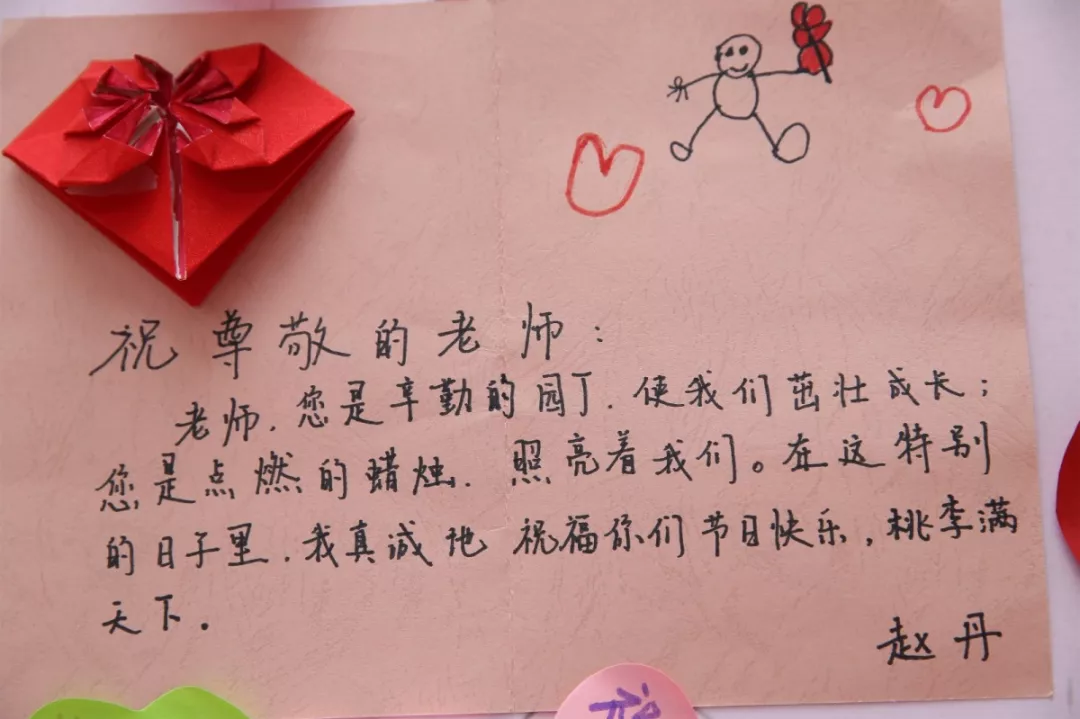 祝尊敬的老师：
老师.您是辛勤的园丁.使我们茁壮成长；
您是点燃的蜡烛.照亮着我们。在这特别
的日子里.我真诚地 祝福你们节日快乐,桃李满
天下.
赵丹